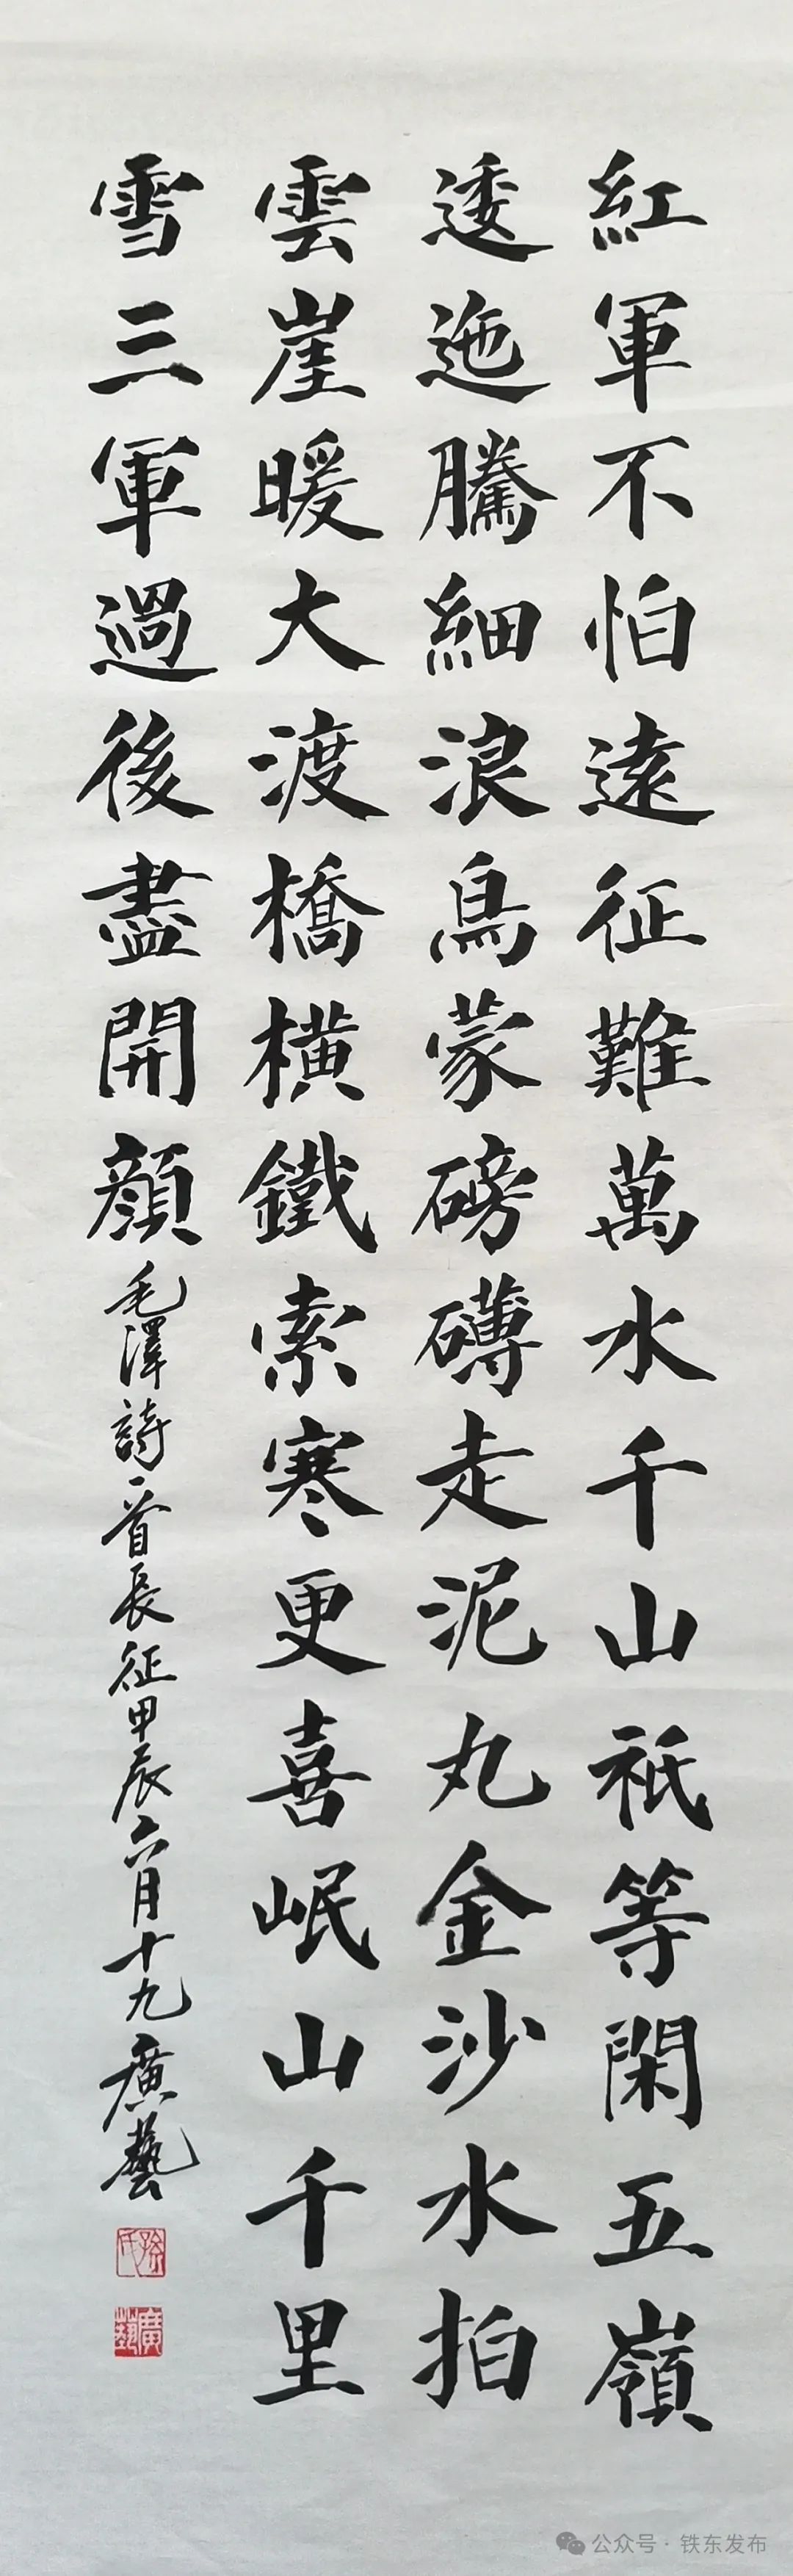 紅軍不怕遠征難萬水千山祇等閑五嶺
逶迤騰細浪鳥蒙磅礴走泥丸金沙水拍
雲崖暖大渡橋横鐵索寒更喜岷山千里
雪三軍過後盡開顔毛澤詩一首長征甲辰六月十九廣藝
孫氏
廣藝
公众号·铁东发布